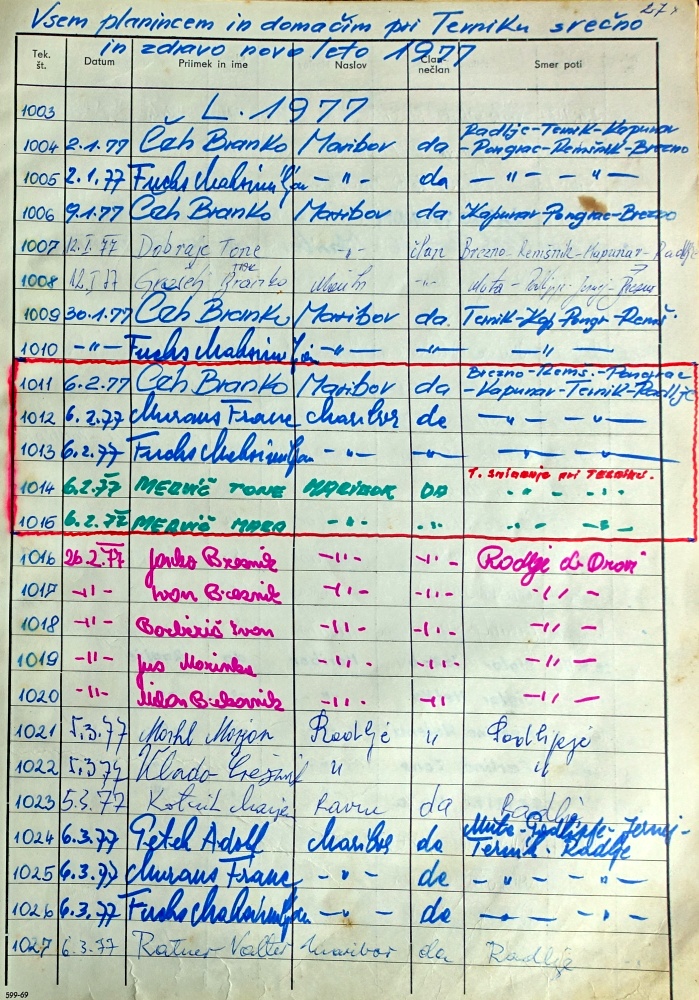 27
Vsem planincem in domačim pri Terniku srečno
in zdravo novo leto 1977
Tek. št. Datum Priimek in ime Naslov Član-nečlan Smer poti
1003 L. 1977
1004 2.1.77 Čeh Branko Maribor da Radlje-Ternik-Kapunar
-Pongrac-Remšnik-Brezno
1005 2.1.77 Fuchs Maksimiljan -"- da - " - " -
1006 9.1.77 Čeh Branko Maribor da Kapunar-Pongrac-Brezno
1007 12.I.77 Dobrajc Tone -"- član Brezno-Remšnik-Kapunar-Radlje
1008 12.I.77 Branko -"- Muta-
1009 30.1.77 Čeh Branko Maribor da Ternik-Kap-Pongr-Remš
1010 -"- Fuchs Maksimiljan -"- -"- -"-
1011 6.2.77 Čeh Branko Maribor da Brezno-Remš.-Pongrac
-Kapunar-Ternik-Radlje
1012 6.2.77 Muraus Franc Maribor da - " - " -
1013 6.2.77 Fuchs Maksimiljan - " - -"- - " -
1014 6.2.77 MERVIČ TONE MARIBOR DA 1. srečanje pri TERNIKU.
- " - " -
1015 6.2.77 MERVIČ MARA -"- -"- - " - " -
1016 26.2.77 Janko Bresnik -"- -"- Radlje ob Dravi
1017 -"- Ivan Bresnik -"- -"- -"-
1018 -"- Ivan -"- -"- -"-
1019 -"- Marinka -"- -"- -"-
1020 -"- Milan -"- -"- -"-
1021 5.3.77 Radlje "
1022 5.3.77 Vlado " "
1023 5.3.77 Kotnik Marija Ravne da Radlje
1024 6.3.77 Petek Adolf Maribor da Muta-Podlipje-Jernej-
Ternik-Radlje
1025 6.3.77 Muraus Franc - " - da - " - " -
1026 6.3.77 Fuchs Maksimiljan - " - da - " - " -
1027 6.3.77 Ratner Valter Maribor da Radlje
599-69